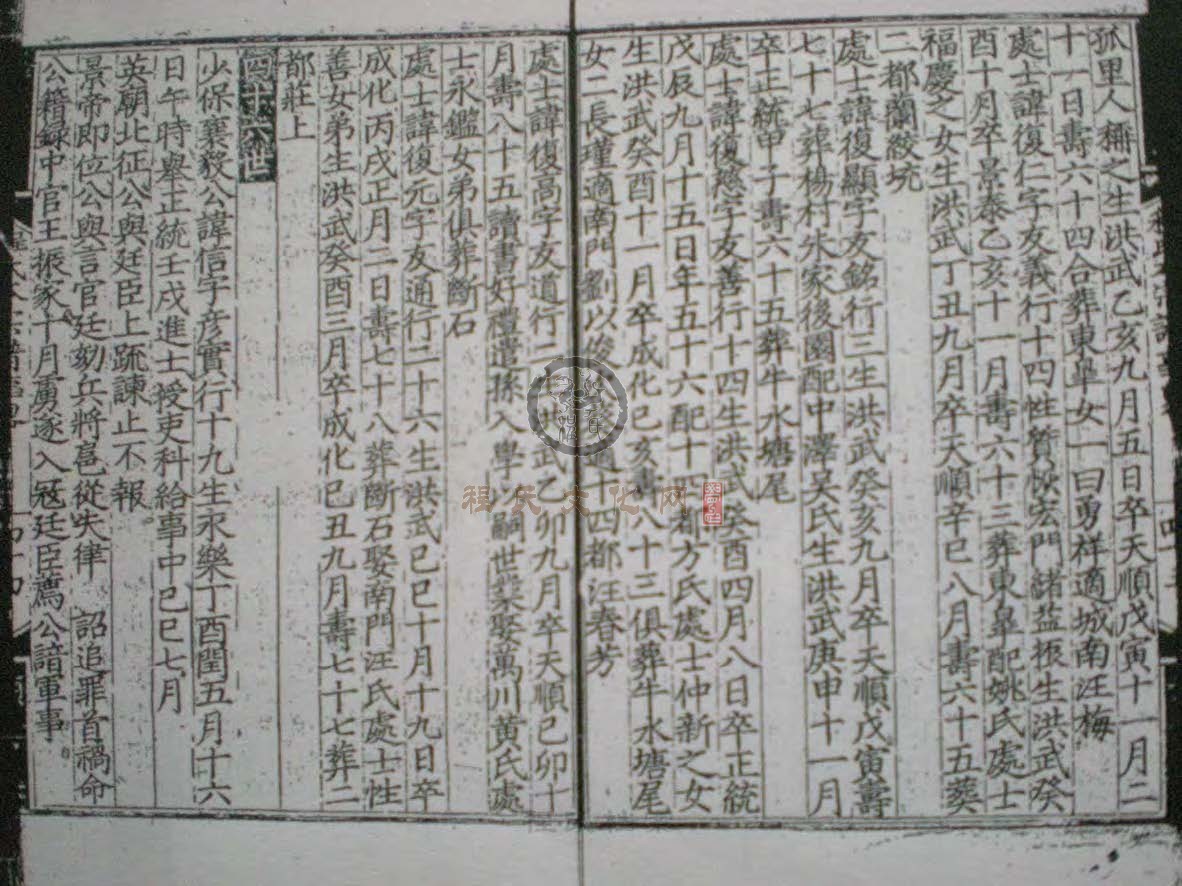 孤里人稱之生洪武乙亥九月五日卒天順戊寅十一月二
十一日壽六十四合葬東皐女一曰勇祥適城南汪梅
處士諱復仁字友義行十四性贊恢宏門緒益振生洪武癸
酉十月卒景泰乙亥十一月壽六十三葬東皐配姚氏處士
福慶之女生洪武丁丑九月卒天順辛巳八月壽六十五葬
二都蘭㲄坑
處士諱復顯字友銘行三生洪武癸亥九月卒天順戊寅壽
七十七葬楊村朱家後園配中澤吴氏生洪武庚申十一月
卒正統甲子壽六十五葬牛水塘尾
處士諱復愻字友善行十四生洪武癸酉四月八日卒正統
戊辰九月十五日年五十六配十都方氏處士仲新之女
生洪武癸酉十一月卒成化己亥壽八十三俱葬牛水塘尾
女二長瑾適南門劉以俊適十四都汪春芳
處士諱復高字友道行二洪武乙卯九月卒天順己卯十
月壽八十五讀書好禮遣孫入學以嗣世業娶萬川黄氏處
士永鑑女弟俱葬斷石
處士諱復元字友通行二十六生洪武己巳十月十九日卒
成化丙戌正月二日壽七十八葬斷石娶南門汪氏處士性
善女弟生洪武癸酉三月卒成化己丑九月壽七十七葬二
都莊上
四十六世
少保襄毅公諱信字彦實行十九生永樂丁酉閏五月十六
日午時舉正統壬戌進士授吏科給事中己巳七月
英朝北征公與廷臣上疏諫止不報
景帝即位公與言官廷劾兵將扈從失律 詔追罪首禍命
公籍録中官王振家十月虜遂入冦廷臣薦公諳軍事
程氏文化网